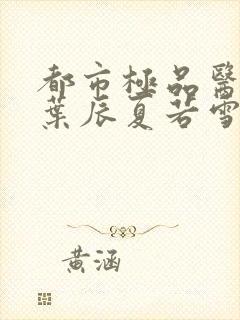 都市極品醫
葉辰夏若雪
黃涵